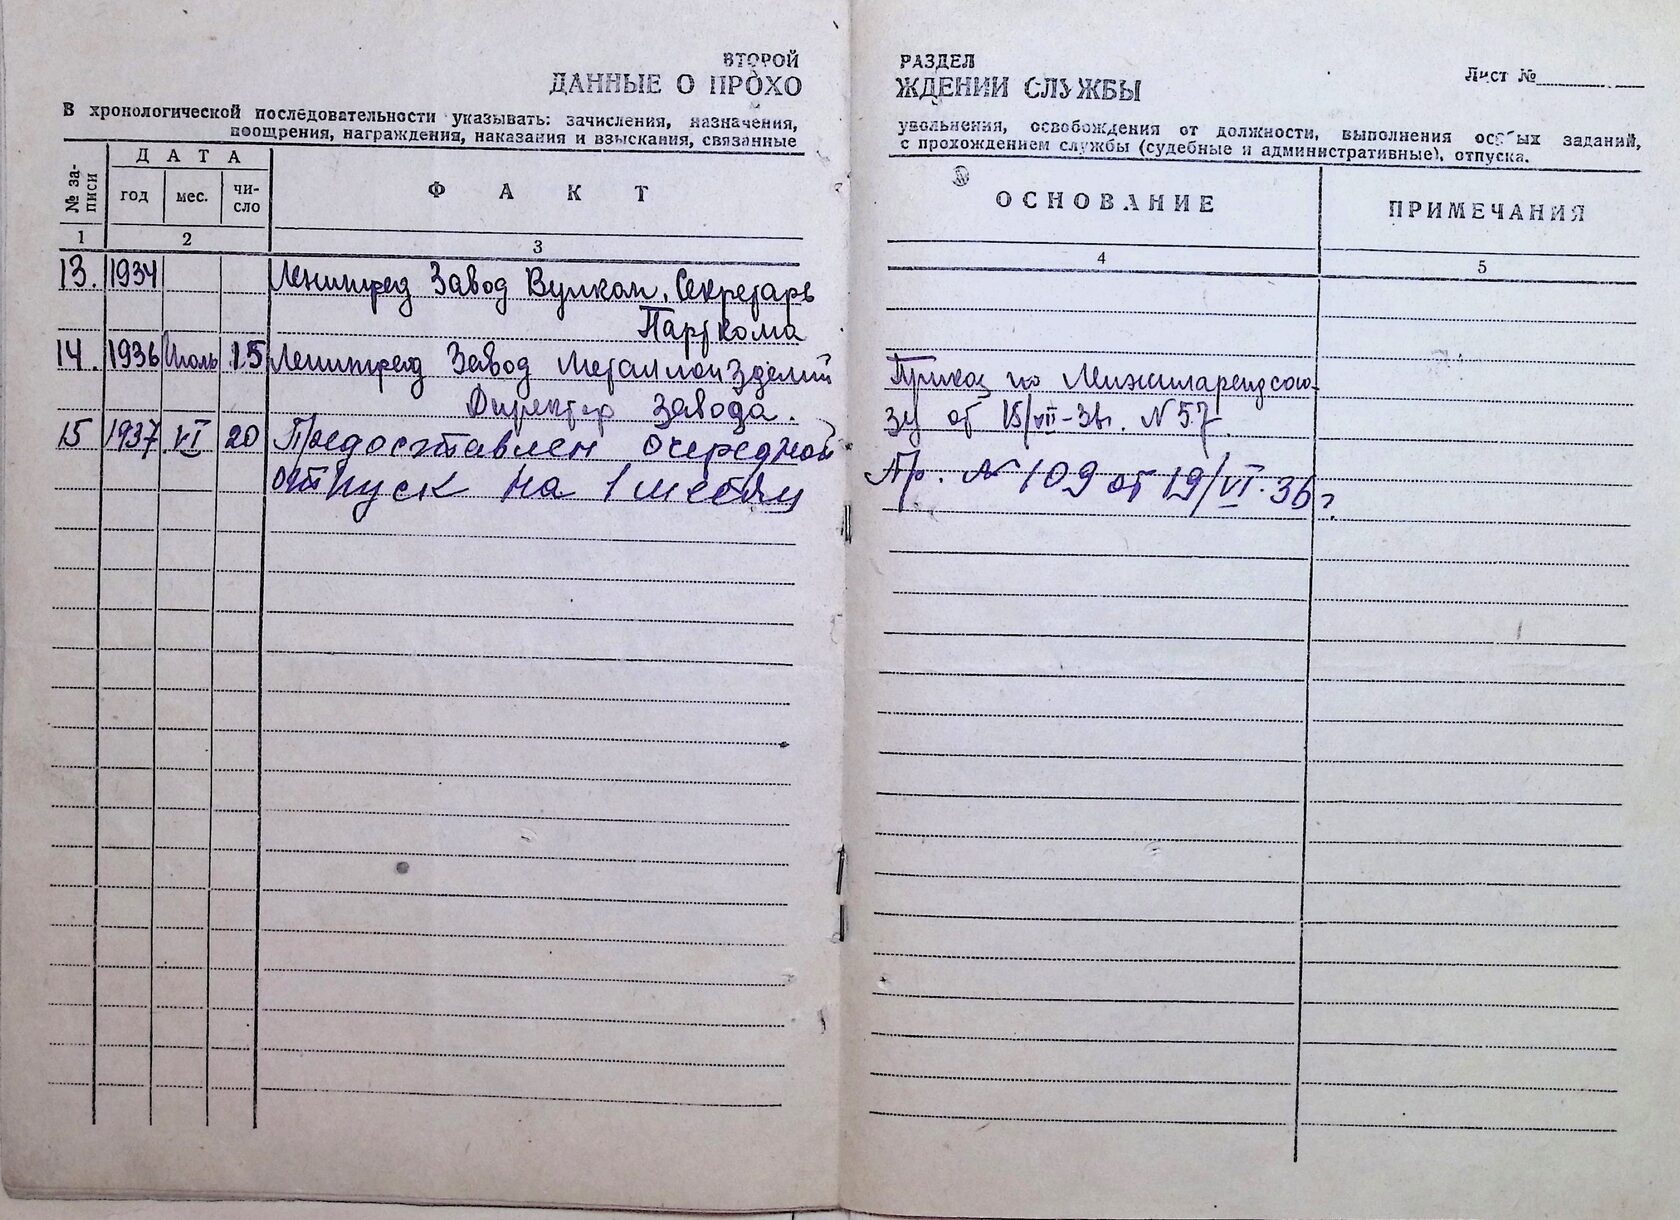 ВТОРОЙ РАЗДЕЛ
Лист №
ДАННЫЕ О ПРОХОЖДЕНИИ СЛУЖБЫ
В хронологической последовательности указывать: зачисления, назначения, увольнения, освобождения от должности, выполнения особых заданий,
поощрения, награждения, наказания и взыскания, связанные с прохождением службы (судебные и административные), отпуска.
№ за-
писи
ДАТА
год мес. чи-
сло
ФАКТ
ОСНОВАНИЕ
ПРИМЕЧАНИЯ
1 2 3 4 5
13. 1934 Ленинград Завод Вулкан, Секретарь
Парткома
14. 1936 Июль 15 Ленинград Завод Металлоизделий Приказ по
Директор завода. зу от 15/VII-36г. № 57.
15 1937 VI 20 Предоставлен очередной
отпуск на 1 месяц Пр. № 109 от 19/VI.36г.